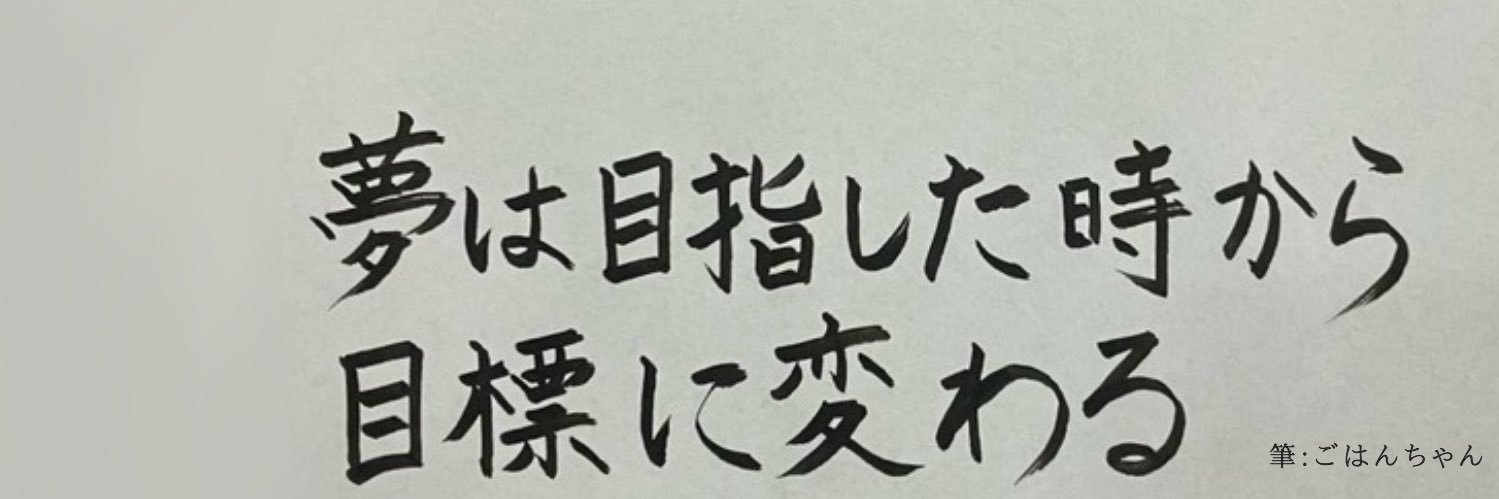 夢は目指した時から
目標に変わる
筆:ごはんちゃん